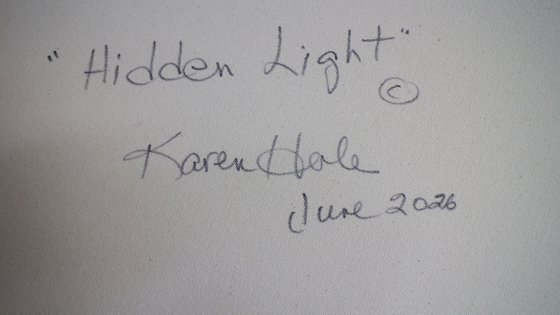 "Hidden Light"
©
Karen Hale
June 2026